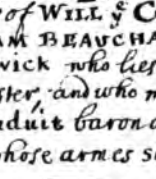 of WILL yͤ C
AM BEAUCHA
wick who lies
ster, and who m
nduit baron o
whose armes s